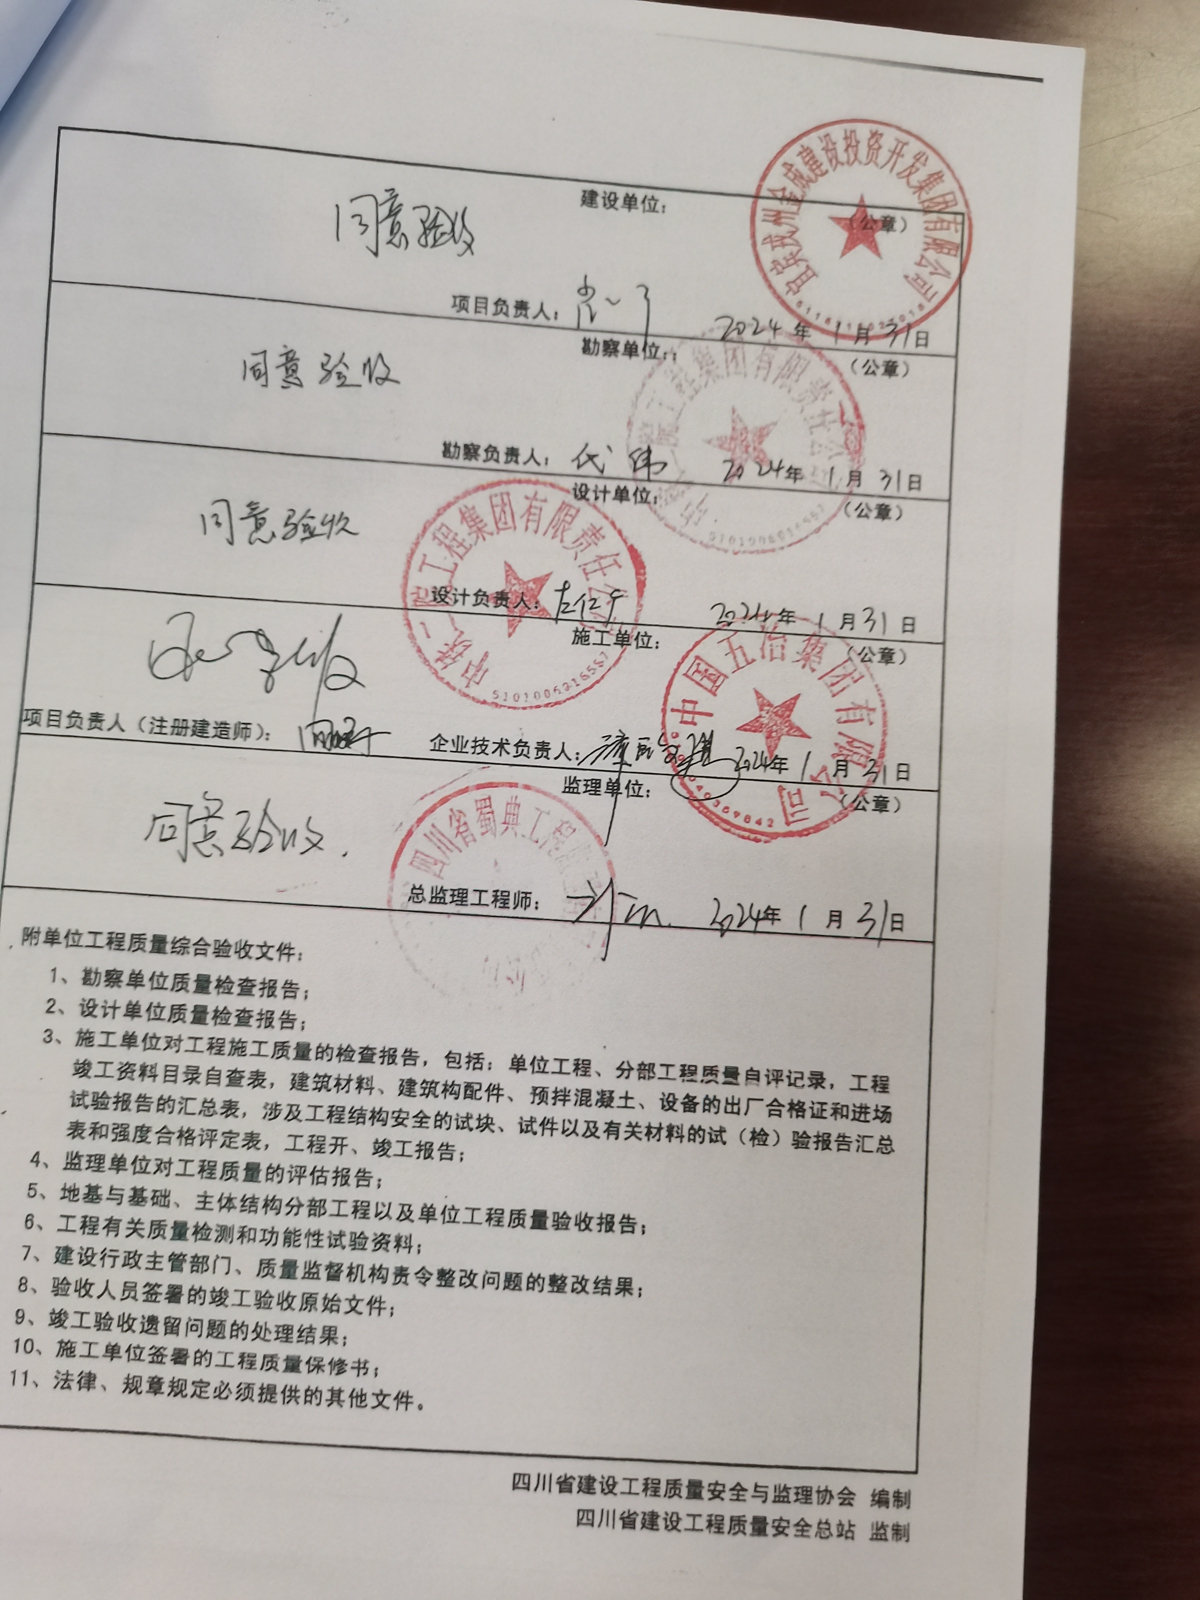 建设单位：
（公章）
宜宾戎州金成建设投资开发集团有限公司
同意验收
项目负责人：
2024年1月31日
勘察单位：
（公章）
工程集团有限责任公
5101006216567
同意验收
勘察负责人：代伟 2024年1月31日
设计单位：
（公章）
中铁二院工程集团有限责任公
5101006216567
同意验收
设计负责人： 2024年1月31日
施工单位：
（公章）
中国五冶集团有限公司
项目负责人（注册建造师）： 企业技术负责人： 2024年1月31日
监理单位：
（公章）
四川省蜀典工程
同意验收.
总监理工程师： 2024年1月31日
附单位工程质量综合验收文件：
1、勘察单位质量检查报告；
2、设计单位质量检查报告；
3、施工单位对工程施工质量的检查报告，包括：单位工程、分部工程质量自评记录，工程
竣工资料目录自查表，建筑材料、建筑构配件、预拌混凝土、设备的出厂合格证和进场
试验报告的汇总表，涉及工程结构安全的试块、试件以及有关材料的试（检）验报告汇总
表和强度合格评定表，工程开、竣工报告；
4、监理单位对工程质量的评估报告；
5、地基与基础、主体结构分部工程以及单位工程质量验收报告；
6、工程有关质量检测和功能性试验资料；
7、建设行政主管部门、质量监督机构责令整改问题的整改结果；
8、验收人员签署的竣工验收原始文件；
9、竣工验收遗留问题的处理结果；
10、施工单位签署的工程质量保修书；
11、法律、规章规定必须提供的其他文件。
四川省建设工程质量安全与监理协会 编制
四川省建设工程质量安全总站 监制